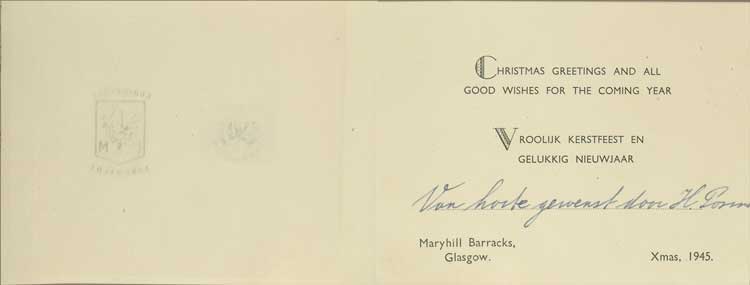 CHRISTMAS GREETINGS AND ALL
GOOD WISHES FOR THE COMING YEAR
VROOLIJK KERSTFEEST EN
GELUKKIG NIEUWJAAR
Van harte gewenst door H.
Maryhill Barracks,
Glasgow.
Xmas, 1945.